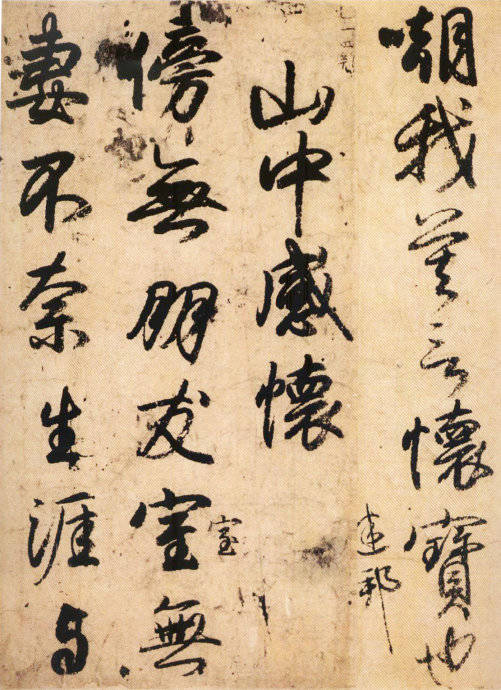 嘲我莫言懷寶也
迷邦
山中感懷
傍無朋友室無
室
妻不奈生涯与